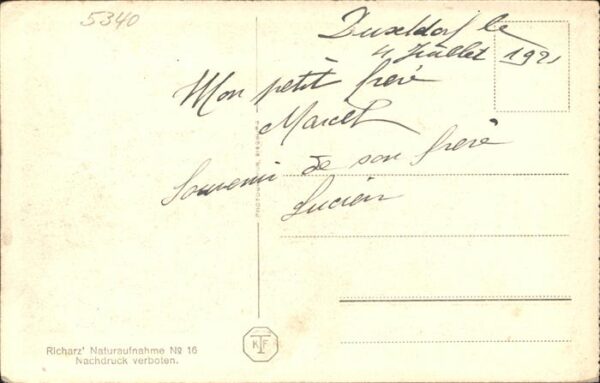 5340
Dusseldorf le
4 Juillet 1921
Mon petit frere
Marcel
Souvenir de son frere
Lucien
Richarz' Naturaufnahme No 16
Nachdruck verboten.
KTF